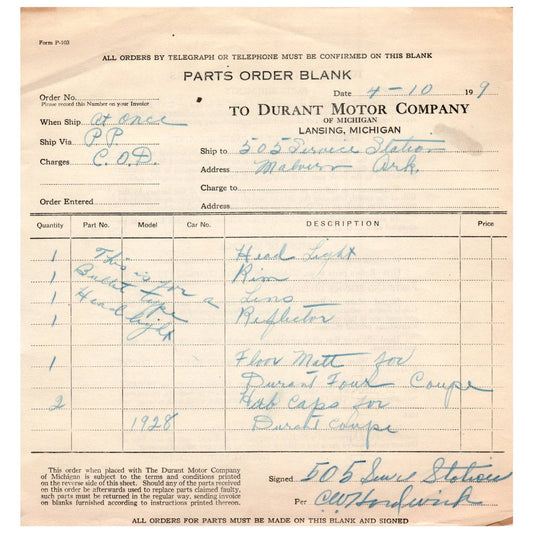 Form P-103
ALL ORDERS BY TELEGRAPH OR TELEPHONE MUST BE CONFIRMED ON THIS BLANK
PARTS ORDER BLANK
Order No.
Please record this Number on your Invoice
Date 4-10 199
When Ship At Once
TO DURANT MOTOR COMPANY
OF MICHIGAN
LANSING, MICHIGAN
Ship Via P.P.
Ship to 505 Service Station
Charges C.O.D.
Address Malvern Ark.
Charge to
Order Entered
Address
Quantity Part No. Model Car No. DESCRIPTION Price
1 Head Light
1 Rim
1 Lins
1 Reflector
This is for a
Bullet type
Head light
1 Floor Matt for
Durant Four Coupe
2 Hub Caps for
1928 Durant Coupe
This order when placed with The Durant Motor Company
of Michigan is subject to the terms and conditions printed
on the reverse side of this sheet. Should any of the parts received
on this order be afterwards used to replace parts claimed faulty,
such parts must be returned in the regular way, sending invoice
on blanks furnished according to instructions printed thereon.
Signed 505 Station
Per
ALL ORDERS FOR PARTS MUST BE MADE ON THIS BLANK AND SIGNED